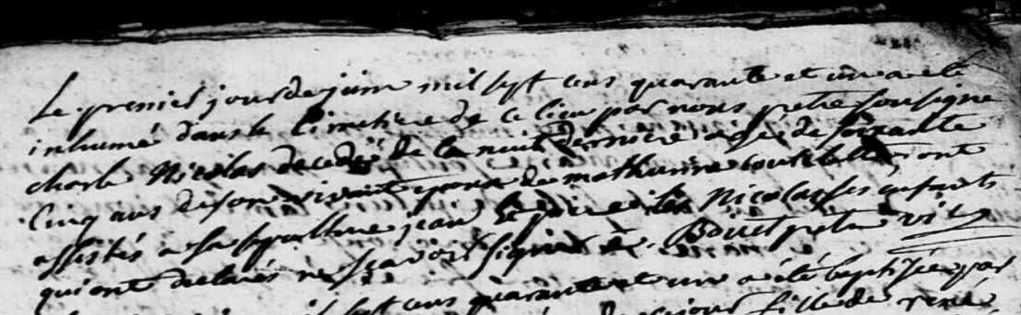 Le premier jour de juin mil sept cens quarante et un a eté
inhumé dans le Cimetiere de ce lieu par nous pretre sousigné
charle Nicolas decedé de la nuit derniere agé de soixante
Cinq ans de son vivant epoux de mathurine ont
assistés a la sepulture jean et pierre les Nicolas ses enfants
qui ont declarés ne sçavoir signer Bouet pretre
sept cens quarante et un a été baptisée par
fille de rené